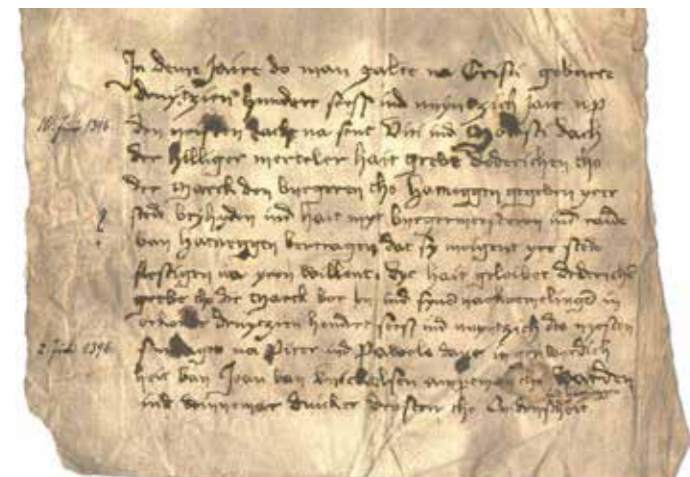 In deme Jaire do man galte na Cristi geborte
druytzien hundert sess ind nuyntzich Jair up
16. Juni 1396
den neisten na sent Viti ind Modesti dach
der hilliger merteler hait greve dederichen tho
der Marck den burgeren tho Hatneggen gegeven yere
stede bevryden ind hait myt burgermesteren ind raide
van Hatneggen verdragen dat sy moigent yre stede
festigen na yren willent, dyt hait geloivet dederich
greve tho der Marck vor en ind syne nackoemelinge in
orkonde druytzien hundert sess ind nuyntzich des neisten
2. Juli 1396
sundages na Peter ind Pawels dage in gen wordich
heit van Joan van amptman tho
ind wennemar duicker drosten tho Ludenscheit